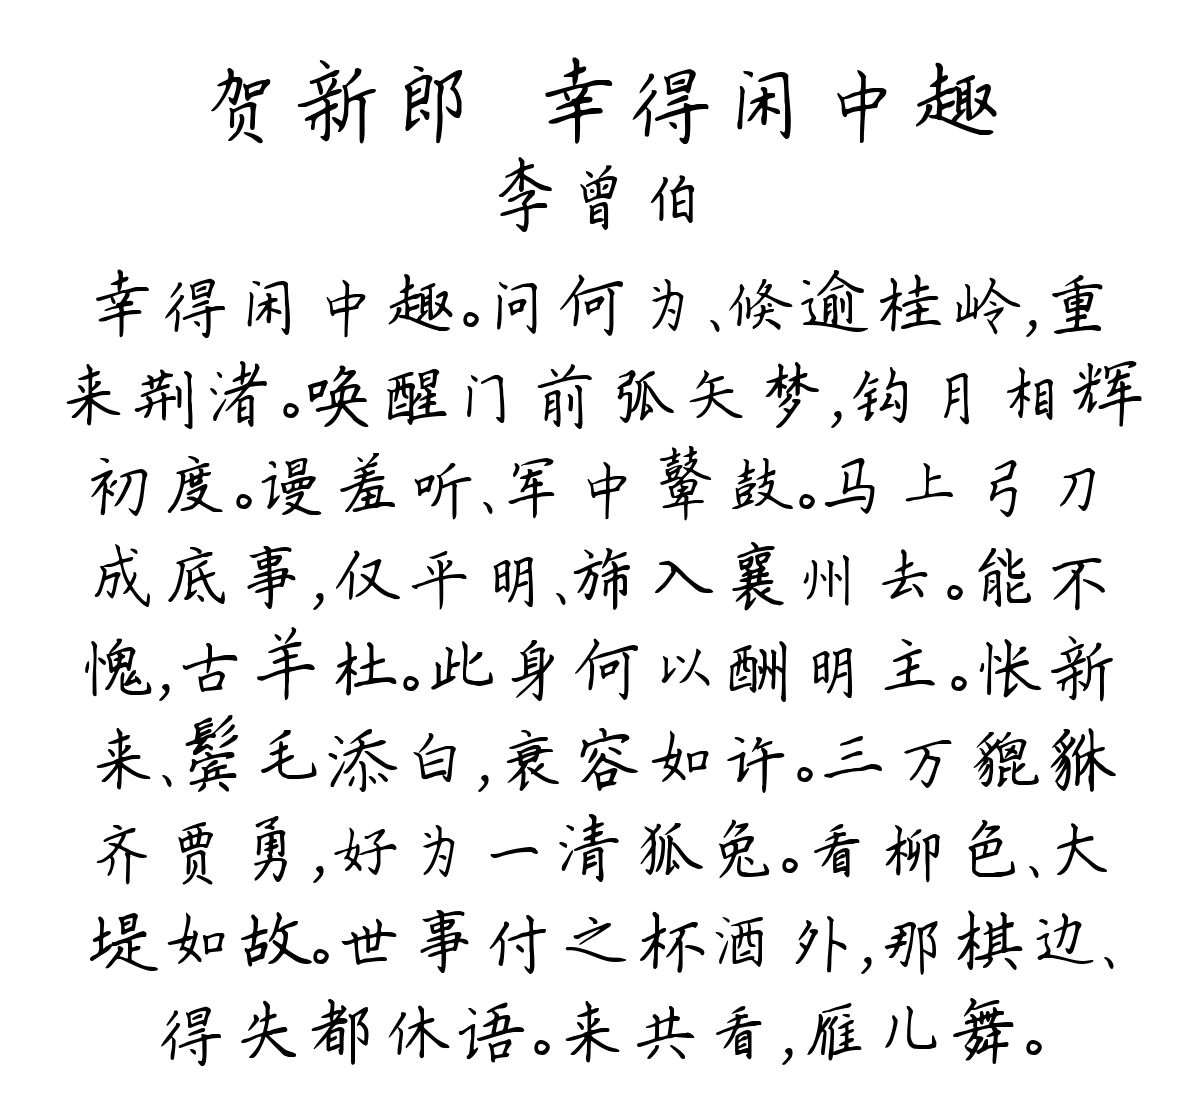 贺新郎 幸得闲中趣
李曾伯
幸得闲中趣。问何为、倏逾桂岭,重
来荆渚。唤醒门前弧矢梦,钩月相辉
初度。谩羞听、军中鼙鼓。马上弓刀
成底事,仅平明、旆入襄州去。能不
愧,古羊杜。此身何以酬明主。怅新
来、鬓毛添白,衰容如许。三万貔貅
齐贾勇,好为一清狐兔。看柳色、大
堤如故。世事付之杯酒外,那棋边、
得失都休语。来共看,雁儿舞。